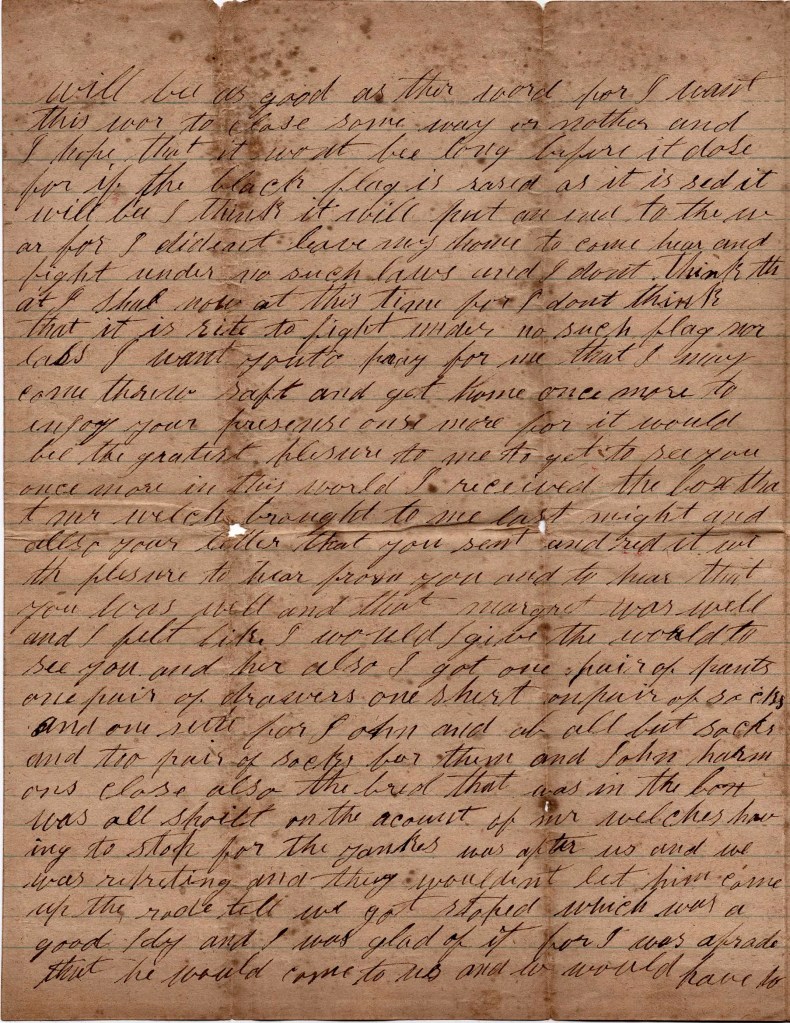 will bee as good as ther word for I want
this wor to close some way or nother and
I hope that it wont bee long before it close
for if the black flag is rased as it is sed it
will bee I think it will put an end to the w
ar for I dident leave my home to come hear and
fight under no such laws and I dont think th
at I shal now at this time for I dont think
that it is rite to fight under no such flag nor
laws I want you to pray for me that I may
come threw saft and get home once more to
enjoy your presense onse more for it would
bee the gratest plesure to me to get to see you
once more in this world I received the box tha
t mr welch brought to me last night and
allso your letter that you sent and red it wi
th plesure to hear from you and to hear that
you was well and that margret was well
and I felt like I would give the world to
see you and her also I got one pair of pants
one pair of drawers one shert on pair of socks
and one sute for John and ab all but socks
and too pair of socks for them and John harm
ons close also the bred that was in the box
was all spoilt on the acount of mr welches hav
ing to stop for the yankes was after us and we
was retreting and they wouldent let him come
up the rode tell we got stoped which was a
good Idy and I was glad of it for I was afrade
that he would come to us and w would have to